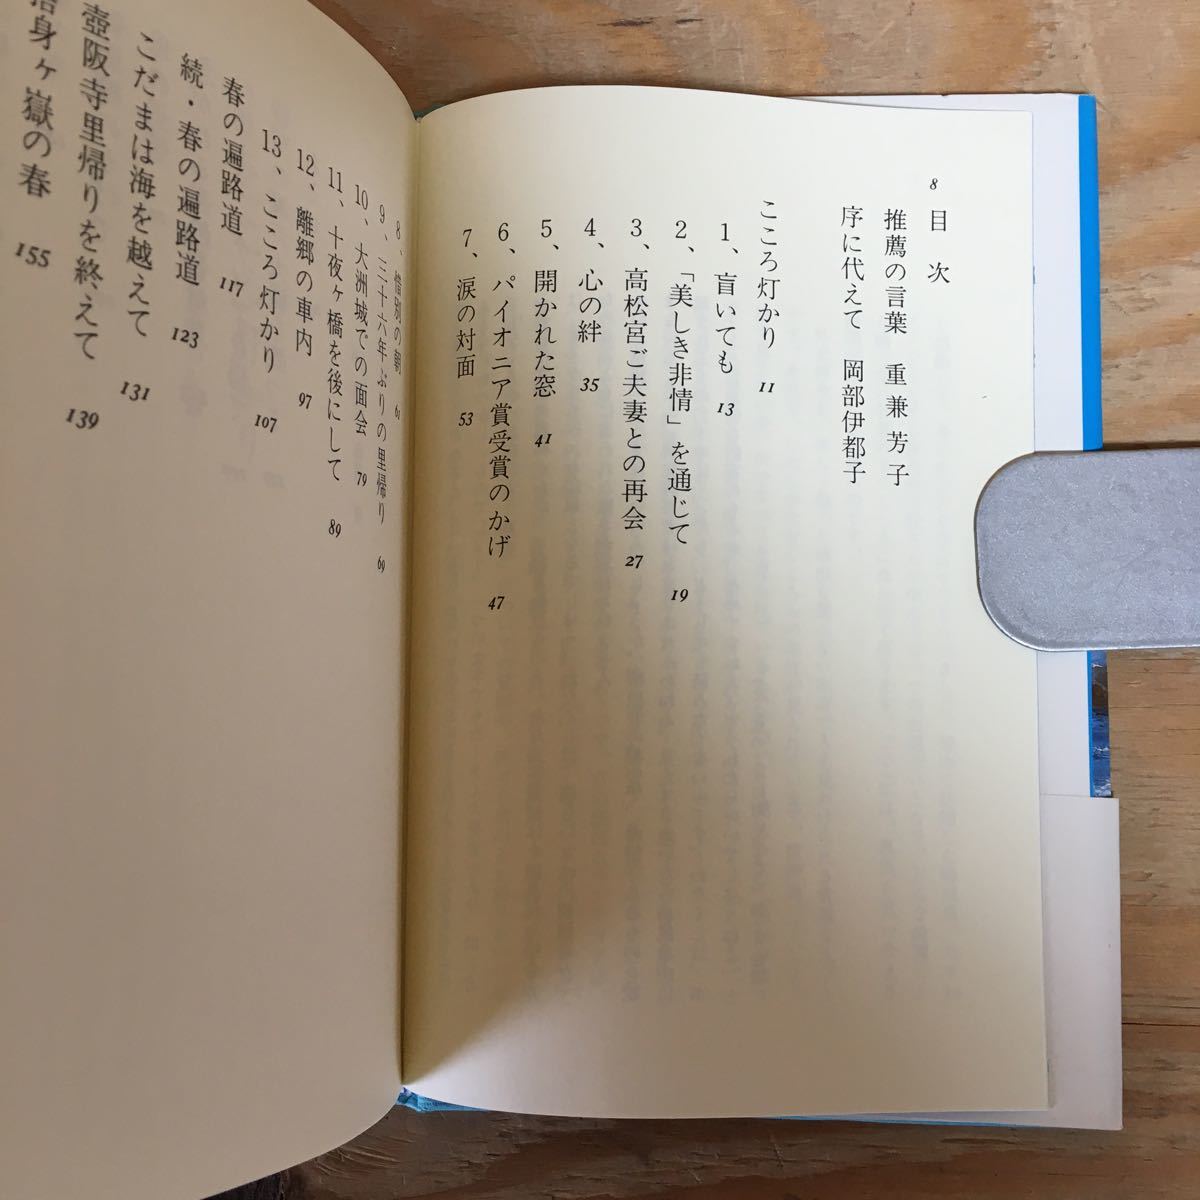 8 目次
推薦の言葉 重兼芳子
序に代えて 岡部伊都子
こころ灯かり 11
1、盲いても 13
2、「美しき非情」を通じて 19
3、高松宮ご夫妻との再会 27
4、心の絆 35
5、開かれた窓 41
6、パイオニア賞受賞のかげ 47
7、涙の対面 53
8、惜別の朝 61
9、三十六年ぶりの里帰り 69
10、大洲城での面会 79
11、十夜ヶ橋を後にして 89
12、離郷の車内 97
13、こころ灯かり 107
春の遍路道 117
続・春の遍路道 123
こだまは海を越えて 131
壺阪寺里帰りを終えて 139
身ヶ嶽の春 155